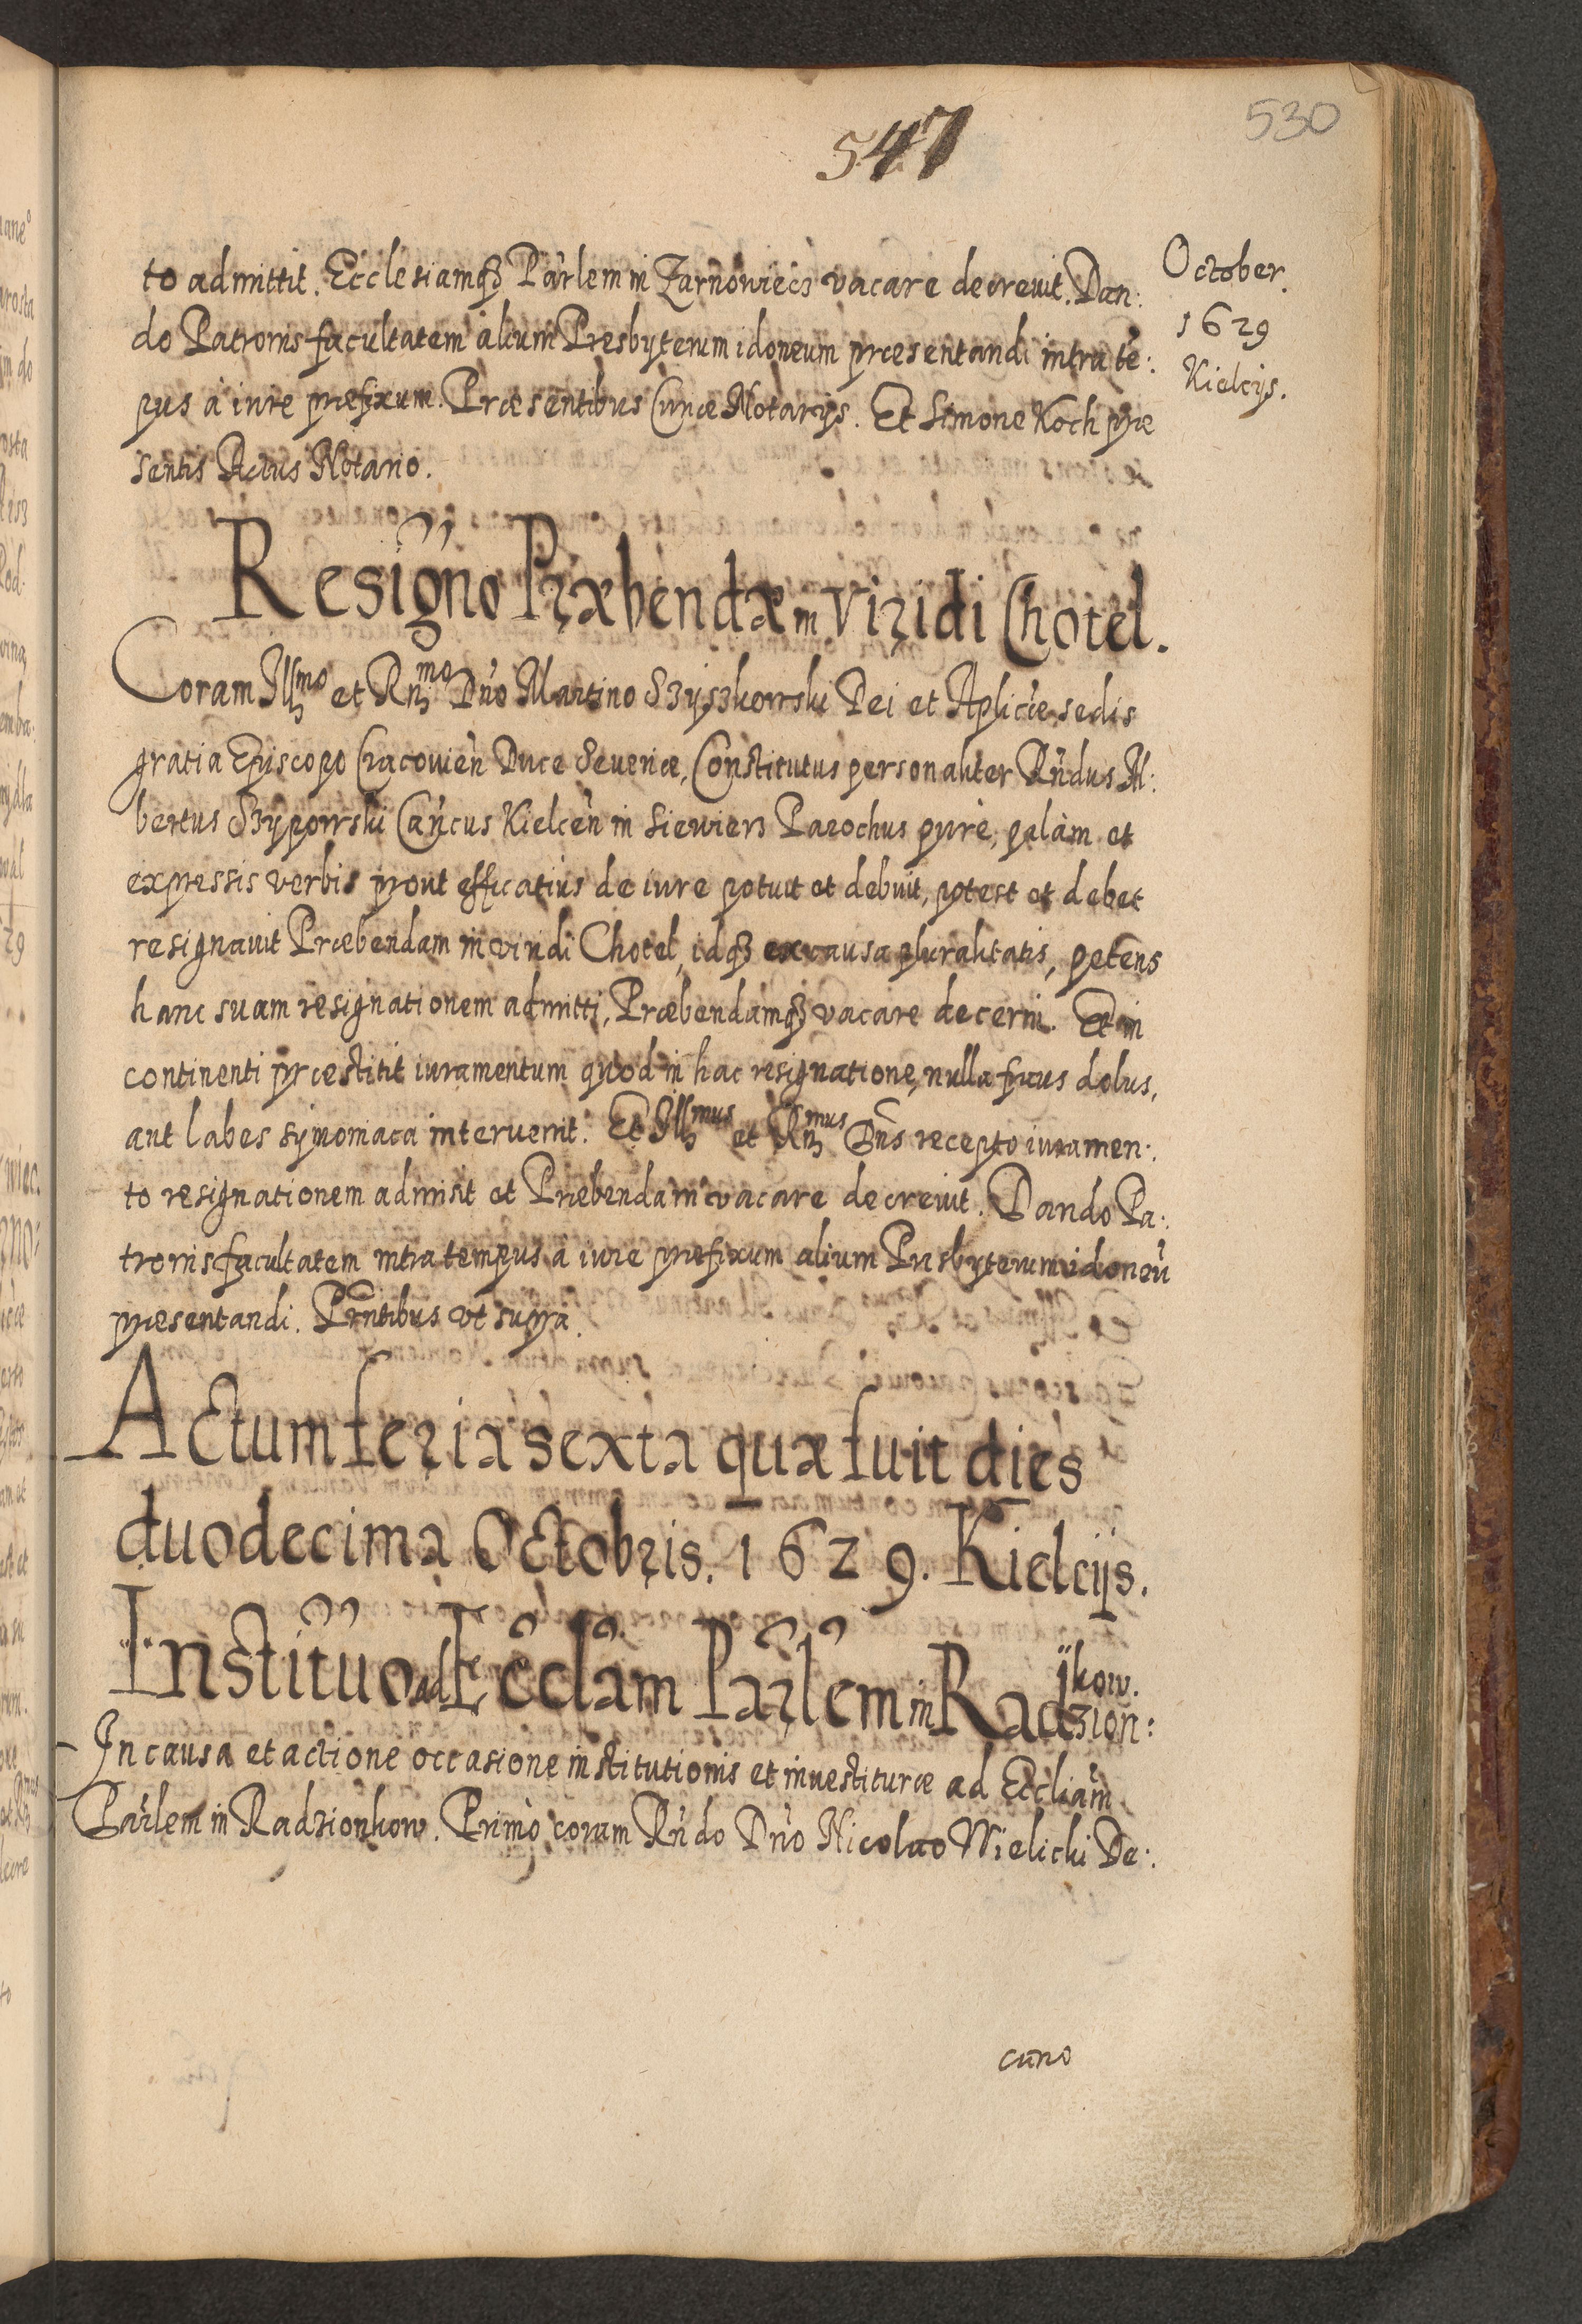 547
530
October.
1629
Kielcijs.
to admittit. Ecclesiamq3 Parlem in Zarnowiecz vacare decrevit. Dan:
do Patronis facultatem alium Presbyterum idoneum præsentandi intra tē:
pus à iure præfixum. Præsentibus Curiæ Notarijs. Et Simone Koch præ
sentis Actus Notario.
Resigno Præbendæ in Viridi Chotel.
Coram Illmo et Rnmo Dno Martino Szyszkowski Dei et Aplicæ sedis
gratia Episcopo Cracovien Duce Severiæ, Constitutus personaliter Rndus Al:
bertus Szypowski Cancus Kielcen in Siewierz Parochus purè, palàm et
expressis verbis prout efficatius de iure potuit et debuit, potest et debet
resignavit Præbendam in viridi Chotel, idq3 ex causa pluralitatis, petens
hanc suam resignationem admitti, Præbendamq3 vacare decerni. Et in
continenti præstitit iuramentum quod in hac resignatione nulla fraus dolus,
aut labes symoniaca intervenit. Et Illmus et Rnmus Dns recepto iuramen:
to resignationem admisit et Præbendam vacare decrevit. Dando Pa:
tronis facultatem intra tempus à iure præfixum alium Presbyterum idoneū
præsentandi. Prntibus vt supra.
Actum feria sexta quæ fuit dies
duodecima Octobris. 1629. Kielcijs.
Instituo ad Ecclam Parlem in Radzion:
ijkow.
In causa et actione occasione institutionis et investituræ ad Eccliam
Parlem in Radzionkow. Primò coram Rndo Dno Nicolao Wielicki De:
cano